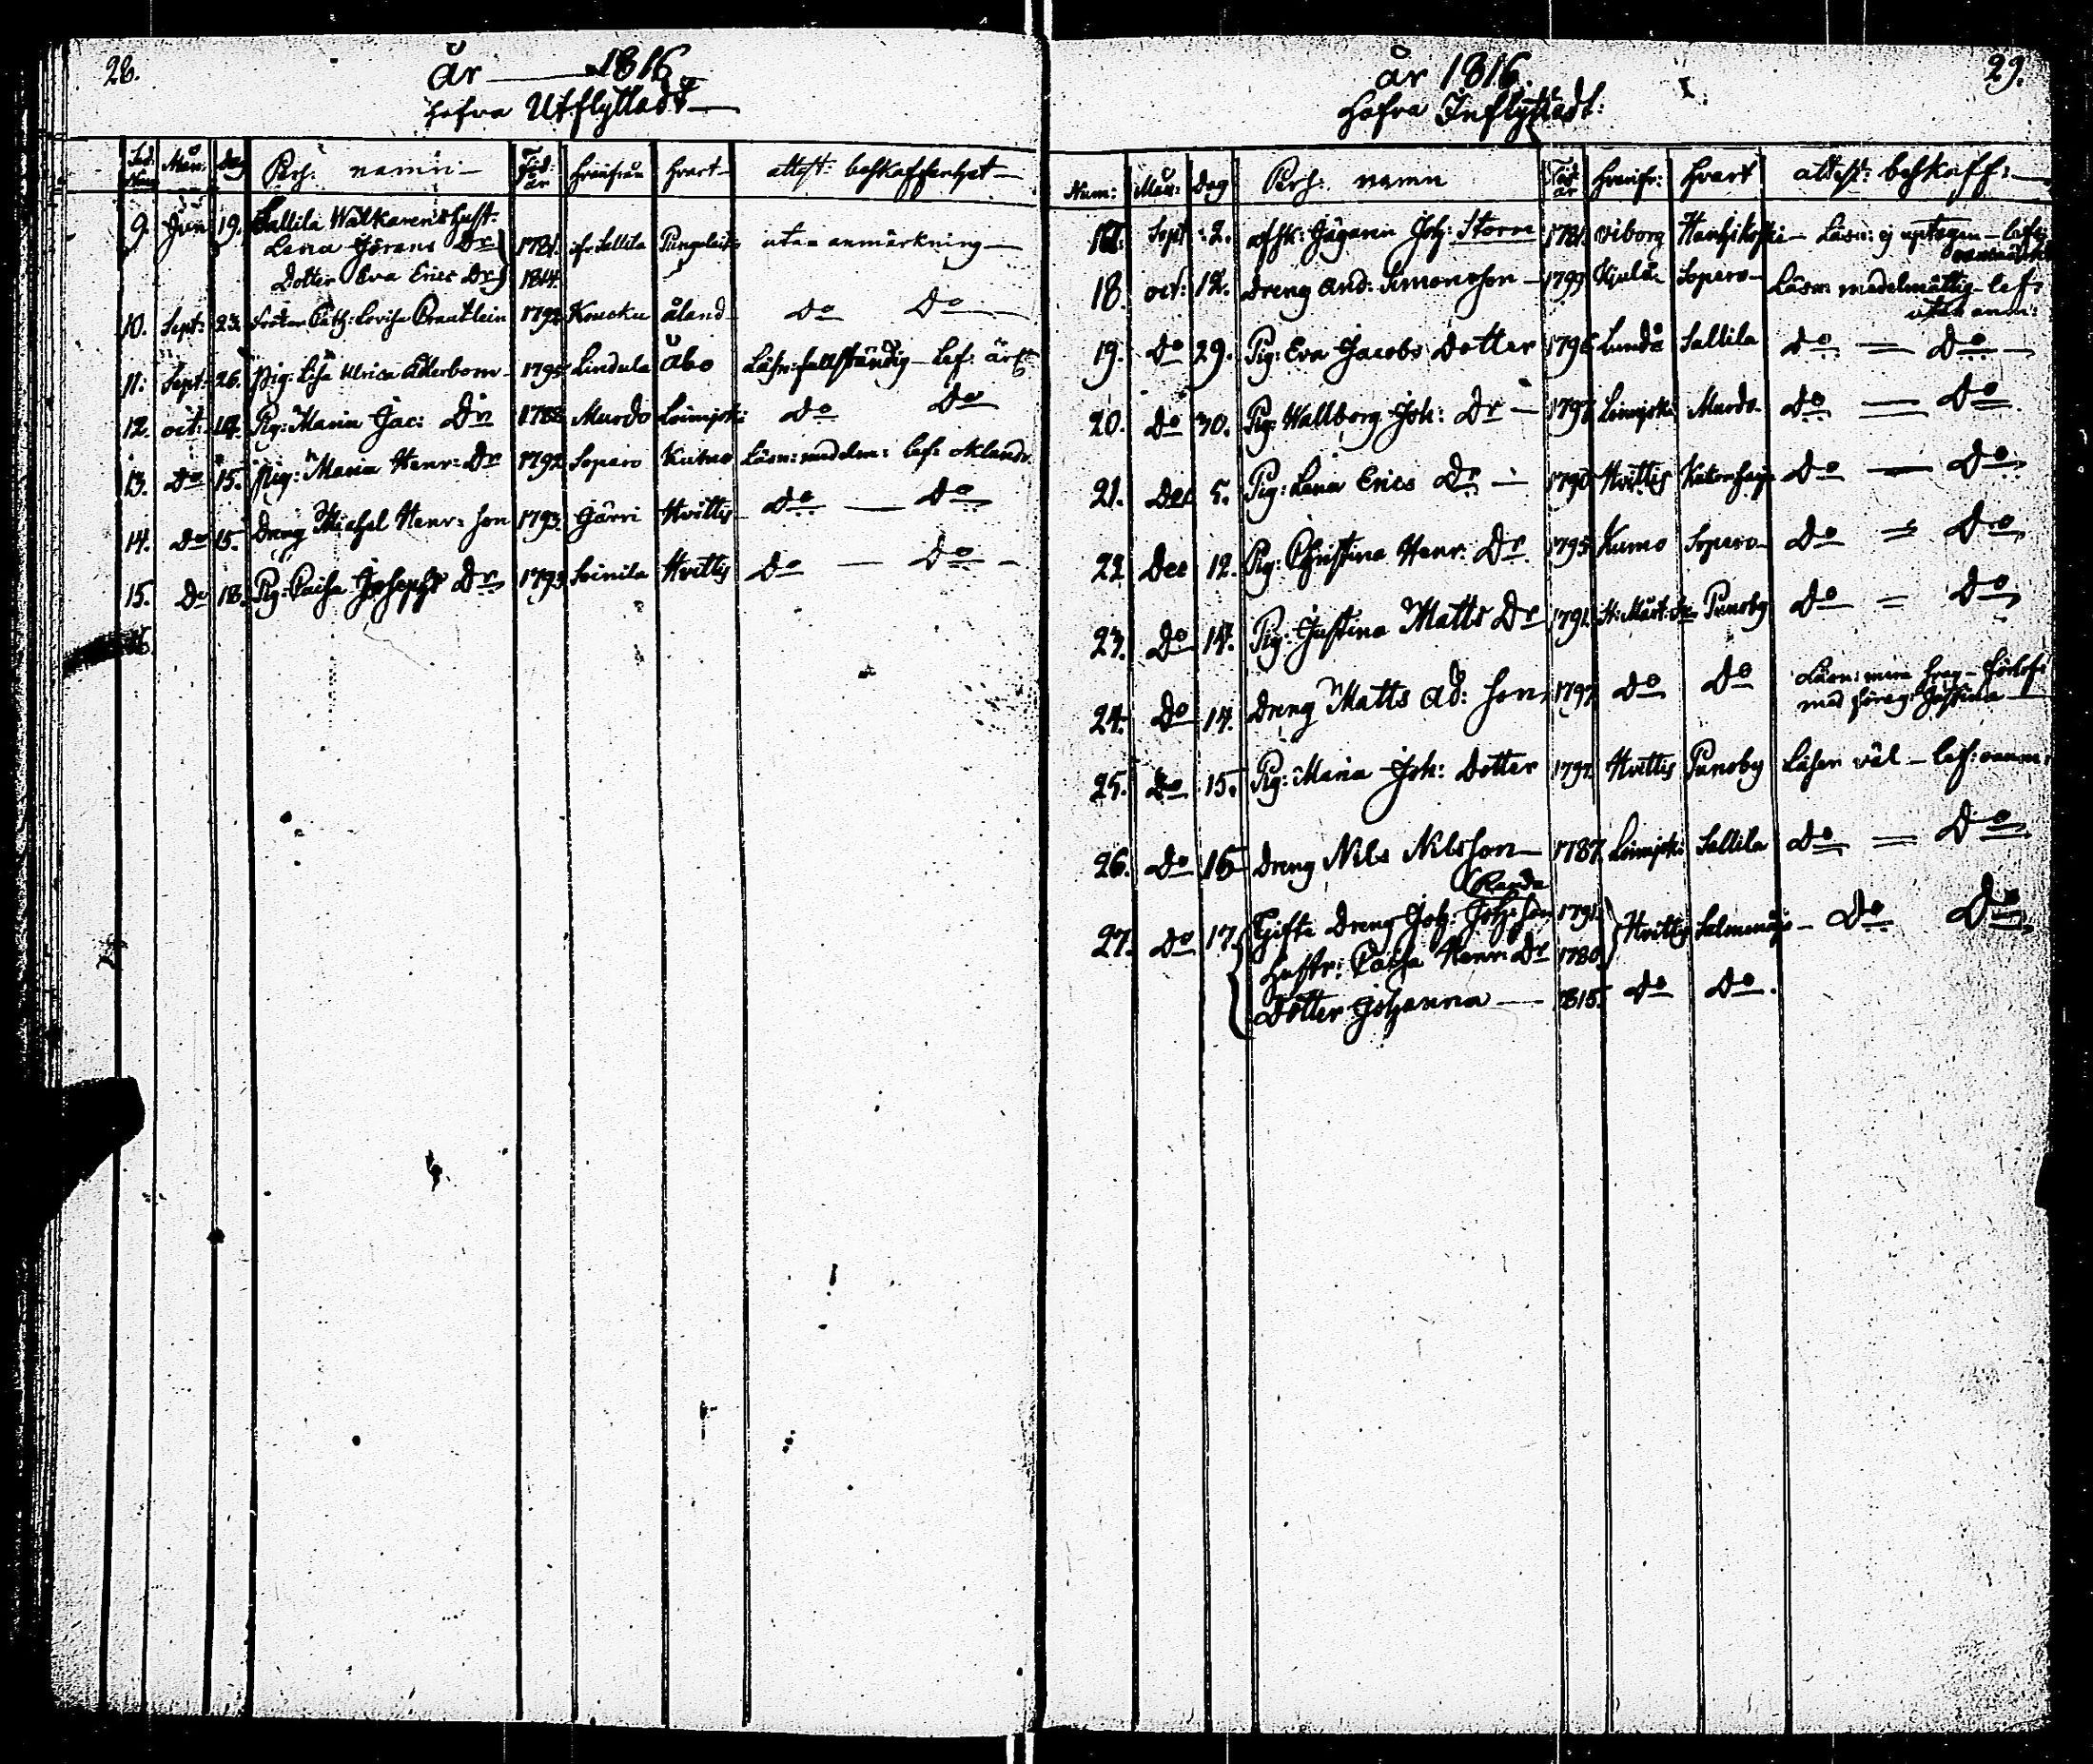 28.
år 1816
hafva Utflyttadt
Sed. Num: Mån: Dag Pers: namn Föd: år hvarifrån hvart attest: beskaffenhet
9. Jun 19. Sallila Walkarens hust:
Lena Jörans Dr 1781. ifr Sallila Pungalaitio utan anmärkning
Dotter Eva Erics Dr 1814.
10. Sept: 23. Fröken Cath: Lovisa 1792 åland Do Do
11. Sept: 26. Pig: Lisa Ulrica Adlerbom 1795 Lindula Åbo Läsn: fullständig lef: ärl:
12. oct: 14. Pig: Maria Jac: Dr 1788 Murdo Loimijoki Do Do
13. Do 15. Pig: Maria Henr: Dr 1792 Sopero Läsn: medelm: lef: okland:
14. Do 15. Dreng Michel Henr: son 1793 Gärri Hvittis Do Do
15. Do 18. Pig: Caisa Josephs Dr 1793 Soinila Hvittis Do Do
16.
29.
år 1816.
hafva Inflyttadt:
Num: Mån: Dag Pers: namn Föd: år hvarifr: hvart attest: beskaff:
17. Sept 2. afsk: Jägaren Joh: Storm 1781. viborg Hanhikoski Läsn: ej uptagen lef:
18. oct: 12. Dreng And: Simonsson 1799 Kjulå Sopero Läsn: medelmåttig lef:
utan anm:
19. Do 29. Pig: Eva Jacobs Dotter 1796 Lundå Sallila Do Do
20. Do 30. Pig: Wallborg Joh: Dr 1797 Loimijoki Murdo Do Do
21. Dec 5. Pig: Lena Erics Dr 1790 Hvittis Do Do
22 Dec 12. Pig: Christina Henr: Dr 1795 Kumo Sopero Do Do
23. Do 14. Pig: Justina Matts Dr 1791. St: Mårt: Punoby Do Do
24. Do 14. Dreng Matts Ad: son 1797 Do Do Läsn: förlof:
med föreg: Justina
25. Do 15. Pig: Maria Joh: Dotter 1797. Hvittis Punoby Läser väl lef: oanm:
26. Do 16 Dreng Nils Nilsson 1787. Loimijoki Sallila Do Do
27. Do 17. Gifte Dreng Joh: Joh: son 1791. Hvittis Do Do
Hustr: Caisa Henr: Dr 1780
Dotter Johanna 1815. Do Do.